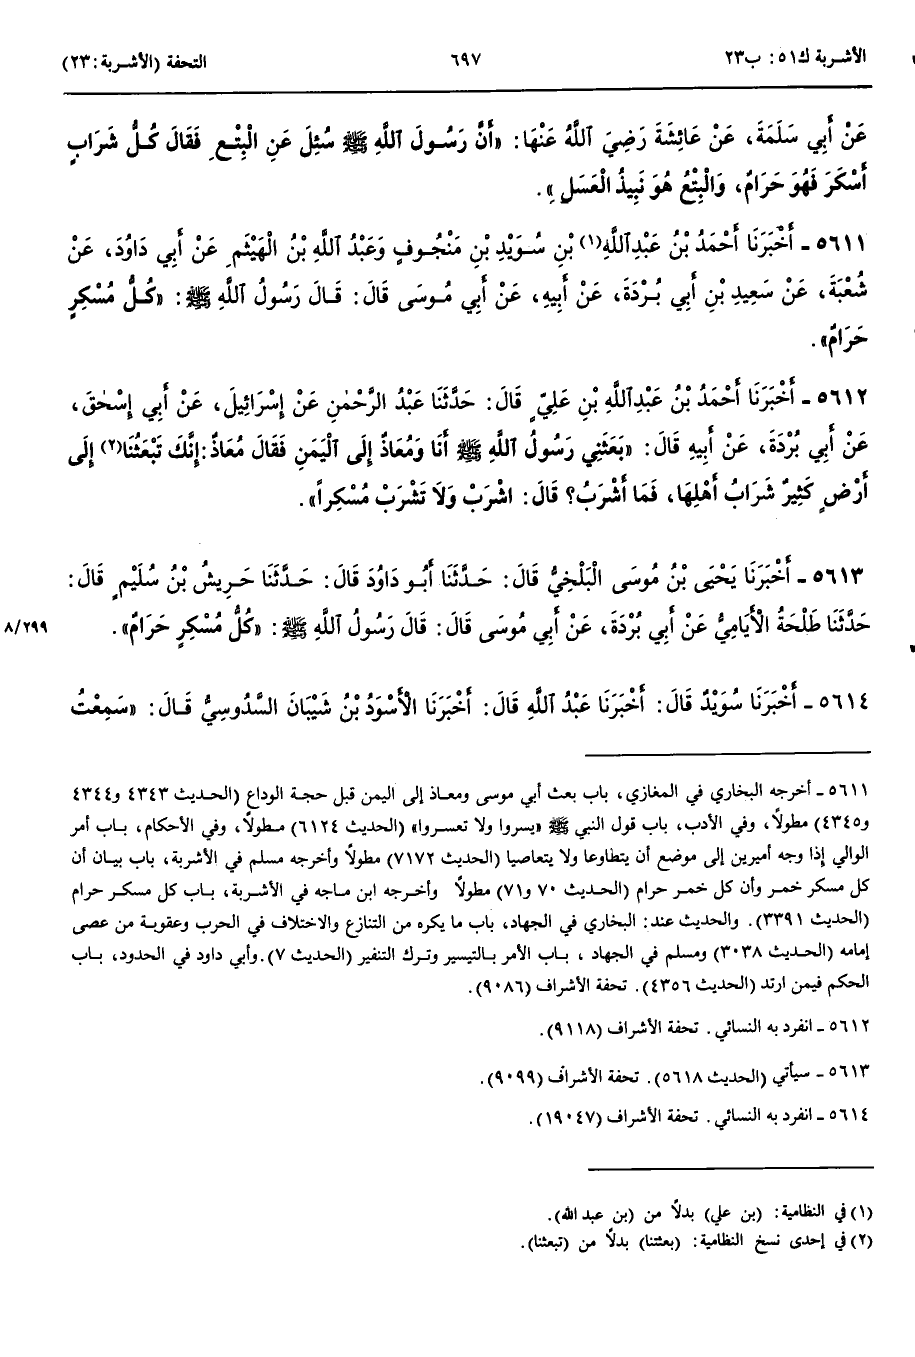 الأشربة ك٥١: ب٢٣ ٦٩٧ التحفة (الأشربة: ٢٣)
عَنْ أَبِي سَلَمَةَ، عَنْ عَائِشَةَ رَضِيَ اللَّهُ عَنْهَا: «أَنَّ رَسُولَ اللَّهِ ﷺ سُئِلَ عَنِ الْبِتْعِ فَقَالَ كُلُّ شَرَابٍ
أَسْكَرَ فَهُوَ حَرَامٌ، وَالْبِتْعُ هُوَ نَبِيذُ الْعَسَلِ».
٥٦١١ - أَخْبَرَنَا أَحْمَدُ بْنُ عَبْدِاللَّهِ(١) بْنِ سُوَيْدِ بْنِ مَنْجُوفٍ وَعَبْدُ اللَّهِ بْنُ الْهَيْثَمِ عَنْ أَبِي دَاوُدَ، عَنْ
شُعْبَةَ، عَنْ سَعِيدِ بْنِ أَبِي بُرْدَةَ، عَنْ أَبِيهِ، عَنْ أَبِي مُوسَى قَالَ: قَالَ رَسُولُ اللَّهِ ﷺ: «كُلُّ مُسْكِرٍ
حَرَامٌ».
٥٦١٢ - أَخْبَرَنَا أَحْمَدُ بْنُ عَبْدِاللَّهِ بْنِ عَلِيٍّ قَالَ: حَدَّثَنَا عَبْدُ الرَّحْمٰنِ عَنْ إِسْرَائِيلَ، عَنْ أَبِي إِسْحٰقَ،
عَنْ أَبِي بُرْدَةَ، عَنْ أَبِيهِ قَالَ: «بَعَثَنِي رَسُولُ اللَّهِ ﷺ أَنَا وَمُعَاذٌ إِلَى الْيَمَنِ فَقَالَ مُعَاذٌ:إِنَّكَ تَبْعَثُنَا(٢) إِلَى
أَرْضٍ كَثِيرٌ شَرَابُ أَهْلِهَا، فَمَا أَشْرَبُ؟ قَالَ: اشْرَبْ وَلَا تَشْرَبْ مُسْكِراً».
٥٦١٣ - أَخْبَرَنَا يَحْيَى بْنُ مُوسَى الْبَلْخِيُّ قَالَ: حَدَّثَنَا أَبُو دَاوُدَ قَالَ: حَدَّثَنَا حَرِيشُ بْنُ سُلَيْمٍ قَالَ:
حَدَّثَنَا طَلْحَةُ الْأَيَامِيُّ عَنْ أَبِي بُرْدَةَ، عَنْ أَبِي مُوسَى قَالَ: قَالَ رَسُولُ اللَّهِ ﷺ: «كُلُّ مُسْكِرٍ حَرَامٌ». ٨/٢٩٩
٥٦١٤ - أَخْبَرَنَا سُوَيْدٌ قَالَ: أَخْبَرَنَا عَبْدُ اللَّهِ قَالَ: أَخْبَرَنَا الْأَسْوَدُ بْنُ شَيْبَانَ السَّدُوسِيُّ قَالَ: «سَمِعْتُ
٥٦١١ - أخرجه البخاري في المغازي، باب بعث أبي موسى ومعاذ إلى اليمن قبل حجة الوداع (الحديث ٤٣٤٣ و٤٣٤٤
و٤٣٤٥) مطولاً، وفي الأدب، باب قول النبي ﷺ «يسروا ولا تعسروا» (الحديث ٦١٢٤) مطولاً، وفي الأحكام، باب أمر
الوالي إذا وجه أميرين إلى موضع أن يتطاوعا ولا يتعاصيا (الحديث ٧١٧٢) مطولاً وأخرجه مسلم في الأشربة، باب بيان أن
كل مسكر خمر وأن كل خمر حرام (الحديث ٧٠ و٧١) مطولاً وأخرجه ابن ماجه في الأشربة، باب كل مسكر حرام
(الحديث ٣٣٩١). والحديث عند: البخاري في الجهاد، باب ما يكره من التنازع والاختلاف في الحرب وعقوبة من عصى
إمامه (الحديث ٣٠٣٨) ومسلم في الجهاد ، باب الأمر بالتيسير وترك التنفير (الحديث ٧).وأبي داود في الحدود، باب
الحكم فيمن ارتد (الحديث ٤٣٥٦). تحفة الأشراف (٩٠٨٦).
٥٦١٢ - انفرد به النسائي. تحفة الأشراف (٩١١٨).
٥٦١٣ - سيأتي (الحديث ٥٦١٨). تحفة الأشراف (٩٠٩٩).
٥٦١٤ - انفرد به النسائي. تحفة الأشراف (١٩٠٤٧).
(١) في النظامية: (بن علي) بدلاً من (بن عبد الله).
(٢) في إحدى نسخ النظامية: (بعثتنا) بدلاً من (تبعثنا).